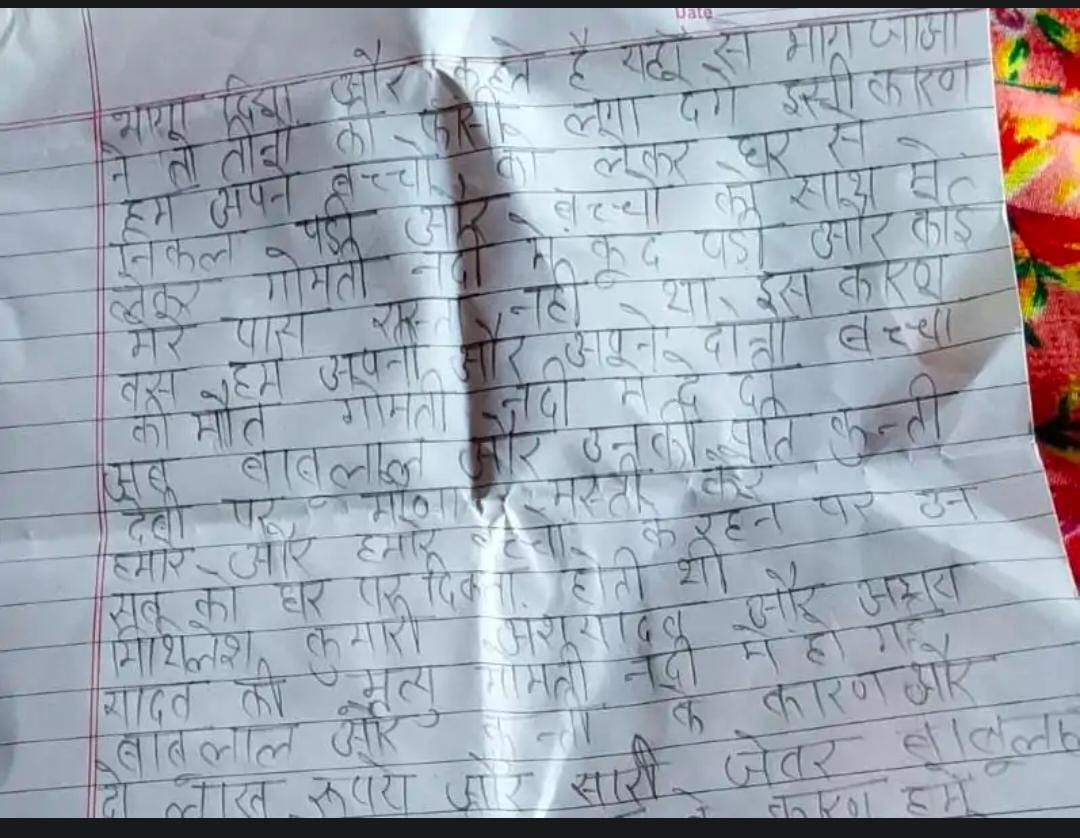 Date
भागा दिया और कहते है यहाँ से भाग जाओ
ने तो तीनो को फाँसी लगा देगे इसी कारण
हम अपने बच्चो को लेकर घर से
निकल पड़ी और बच्चो को साथ
लेकर गोमती नदी मे कूद पड़ी और कोई
मेरे पास रास्ता नही था इस कारण
बस हम अपनी और अपने दोनो बच्चो
की मौत गोमती नदी मे दे दी
अब बाबूलाल और उनकी पति कुन्ती
देवी घर मस्ती करे
हमारे और हमारे बच्चो के रहने पर उन
सब को घर पर दिक्कत होती थी
मिथलेश कुमारी और
यादव की मृत्यु गोमती नदी मे हो गई
बाबूलाल और कुन्ती के कारण और
दो लाख रूपये और सारी जेवर बाबूलाल
कारण हमे